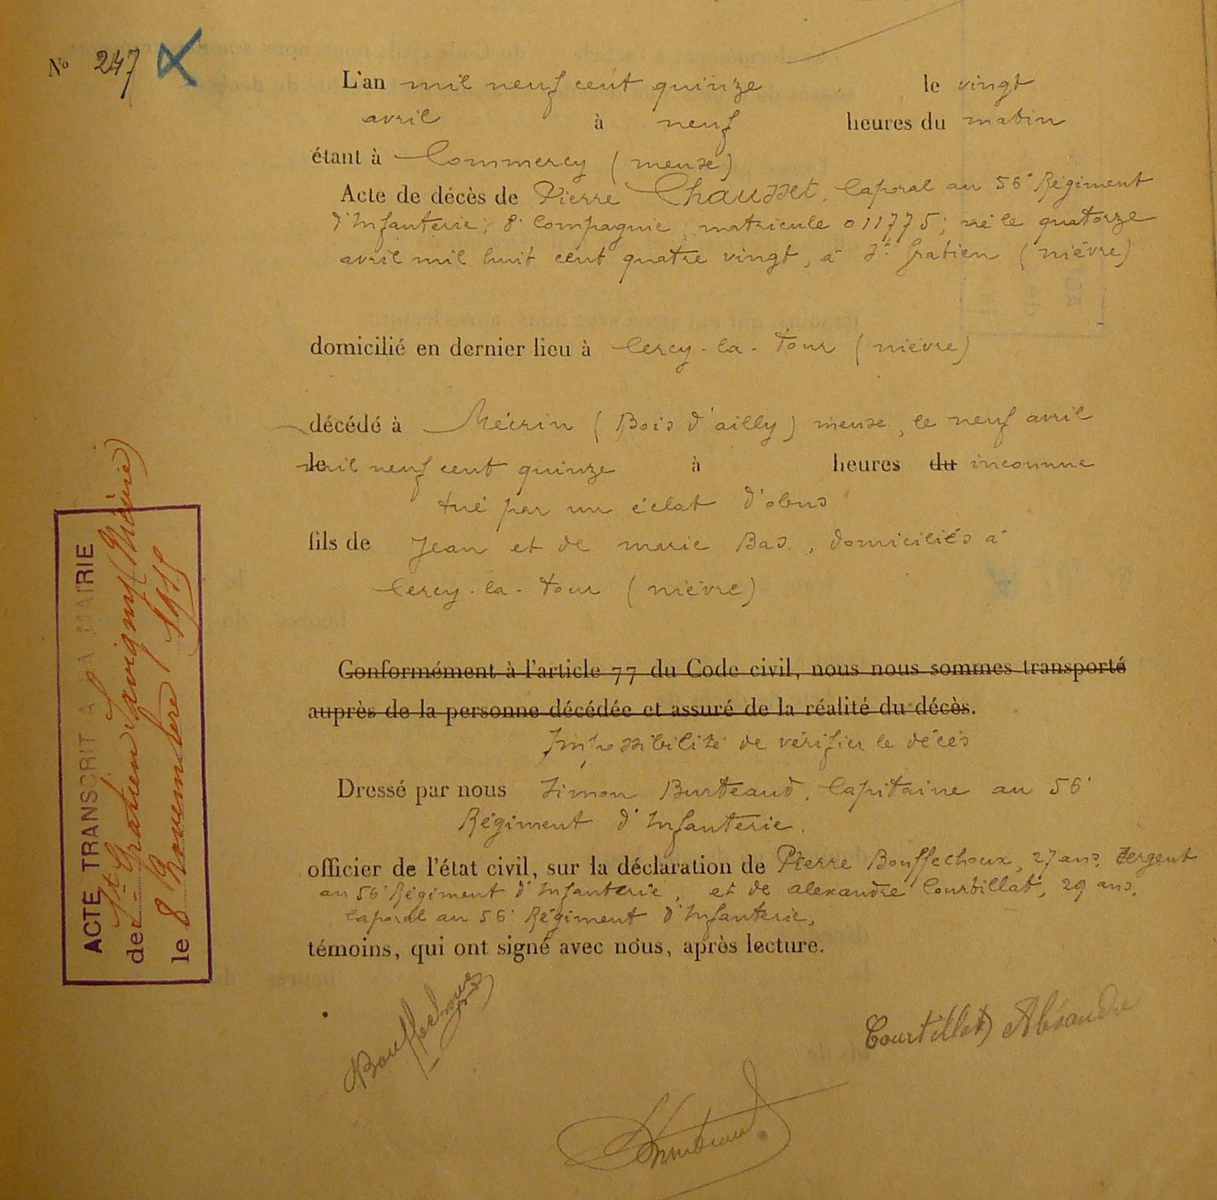 N° 247
L'an mil neuf cent quinze le vingt
avril à neuf heures du matin
étant à Commercy (meuse)
Acte de décès de Pierre Chausset. Caporal au 56e Régiment
d'Infanterie, 8e Compagnie, matricule 011775; né le quatorze
avril mil huit cent quatre vingt, à St Gratien (nièvre)
domicilié en dernier lieu à Cercy-la-Tour (nièvre)
décédé à Mécrin (Bois d'ailly) meuse, le neuf avril
le mil neuf cent quinze à heures du inconnue
tué par un éclat d'obus
fils de Jean et de marie Bas, domiciliés à
Cercy-la-Tour (nièvre)
Conformément à l'article 77 du Code civil, nous nous sommes transporté
auprès de la personne décédée et assuré de la réalité du décès.
Impossibilité de vérifier le décès
Dressé par nous Simon Burteaud, Capitaine au 56e
Régiment d'Infanterie.
officier de l'état civil, sur la déclaration de Pierre Bouffechoux, 27 ans, Sergent
au 56e Régiment d'Infanterie, et de alexandre Courtillat, 29 ans,
Caporal au 56e Régiment d'Infanterie,
témoins, qui ont signé avec nous, après lecture.
Bouffechoux
Courtillat Alexandre
Burteaud
ACTE TRANSCRIT A LA MAIRIE
de St Gratien Savigny (Nièvre)
le 8 Novembre 1915